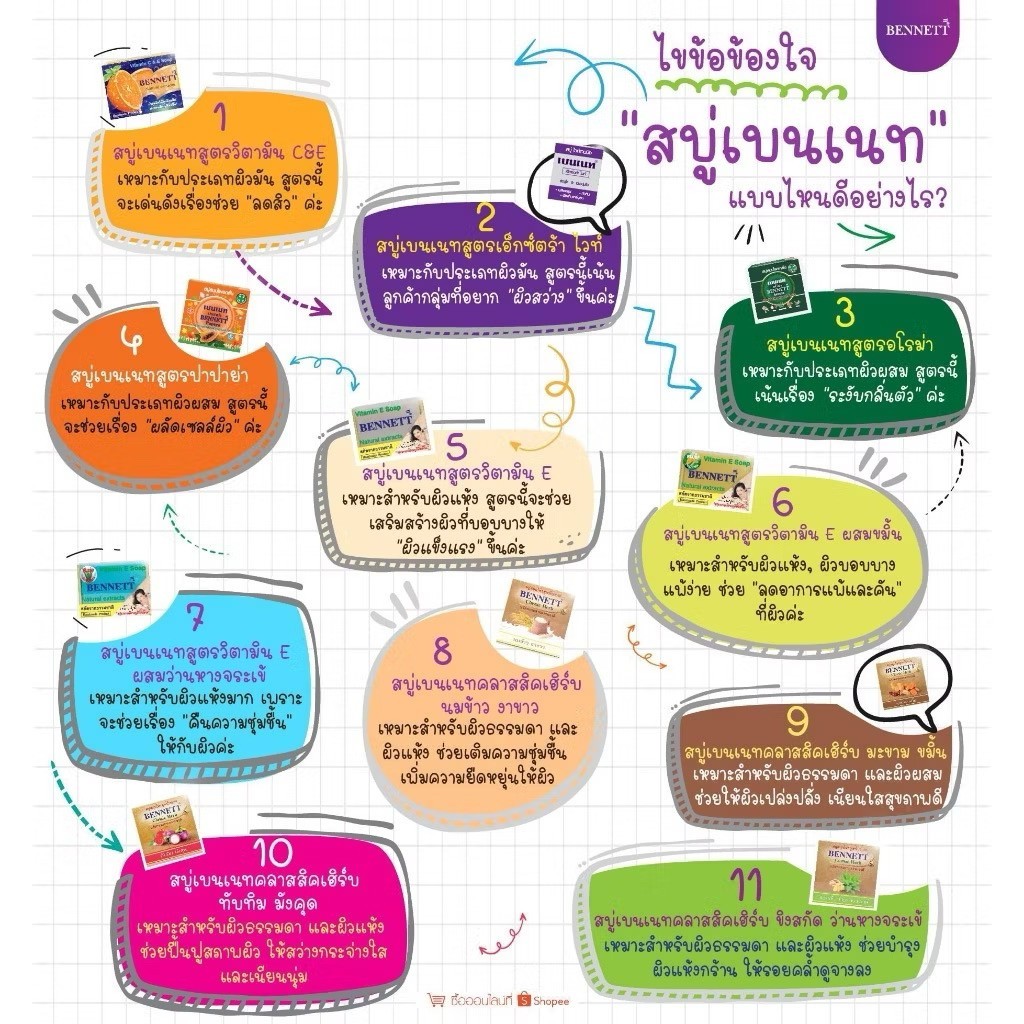 BENNETT
ไขข้อข้องใจ
"สบู่เบนเนท"
แบบไหนดีอย่างไร?
Vitamin C & E Soap
BENNETT
1
สบู่เบนเนทสูตรวิตามิน C&E
เหมาะกับประเภทผิวมัน สูตรนี้
จะเด่นดังเรื่องช่วย "ลดสิว" ค่ะ
เบนเนท
2
สบู่เบนเนทสูตรเอ็กซ์ตร้า ไวท์
เหมาะกับประเภทผิวมัน สูตรนี้เน้น
ลูกค้ากลุ่มที่อยาก "ผิวสว่าง" ขึ้นค่ะ
เบนเนท
BENNETT
3
สบู่เบนเนทสูตรอโรม่า
เหมาะกับประเภทผิวผสม สูตรนี้
เน้นเรื่อง "ระงับกลิ่นตัว" ค่ะ
เบนเนท
BENNETT
4
สบู่เบนเนทสูตรปาปาย่า
เหมาะกับประเภทผิวผสม สูตรนี้
จะช่วยเรื่อง "ผลัดเซลล์ผิว" ค่ะ
Vitamin E Soap
BENNETT
Natural extracts
สกัดจากธรรมชาติ
5
สบู่เบนเนทสูตรวิตามิน E
เหมาะสำหรับผิวแห้ง สูตรนี้จะช่วย
เสริมสร้างผิวที่บอบบางให้
"ผิวแข็งแรง" ขึ้นค่ะ
Vitamin E Soap
BENNETT
Natural extracts
สกัดจากธรรมชาติ
6
สบู่เบนเนทสูตรวิตามิน E ผสมขมิ้น
เหมาะสำหรับผิวแห้ง, ผิวบอบบาง
แพ้ง่าย ช่วย "ลดอาการแพ้และคัน"
ที่ผิวค่ะ
Vitamin E Soap
BENNETT
Natural extracts
สกัดจากธรรมชาติ
7
สบู่เบนเนทสูตรวิตามิน E
ผสมว่านหางจระเข้
เหมาะสำหรับผิวแห้งมาก เพราะ
จะช่วยเรื่อง "คืนความชุ่มชื้น"
ให้กับผิวค่ะ
BENNETT
Classic Herb
8
สบู่เบนเนทคลาสสิคเฮิร์บ
นมข้าว งาขาว
เหมาะสำหรับผิวธรรมดา และ
ผิวแห้ง ช่วยเติมความชุ่มชื้น
เพิ่มความยืดหยุ่นให้ผิว
9
สบู่เบนเนทคลาสสิคเฮิร์บ มะขาม ขมิ้น
เหมาะสำหรับผิวธรรมดา และผิวผสม
ช่วยให้ผิวเปล่งปลั่ง เนียนใสสุขภาพดี
BENNETT
Classic Herb
10
สบู่เบนเนทคลาสสิคเฮิร์บ
ทับทิม มังคุด
เหมาะสำหรับผิวธรรมดา และผิวแห้ง
ช่วยฟื้นฟูสภาพผิว ให้สว่างกระจ่างใส
และเนียนนุ่ม
BENNETT
Classic Herb
11
สบู่เบนเนทคลาสสิคเฮิร์บ ขิงสกัด ว่านหางจระเข้
เหมาะสำหรับผิวธรรมดา และผิวแห้ง ช่วยบำรุง
ผิวแห้งกร้าน ให้รอยคล้ำดูจางลง
ซื้อออนไลน์ที่ Shopee